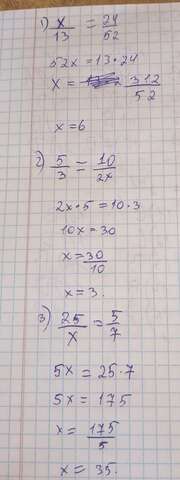 1) x/13 = 24/52
52x = 13 · 24
x = 312/52
x = 6
2) 5/3 = 10/2x
2x · 5 = 10 · 3
10x = 30
x = 30/10
x = 3.
3) 25/x = 5/7
5x = 25 · 7
5x = 175
x = 175/5
x = 35.